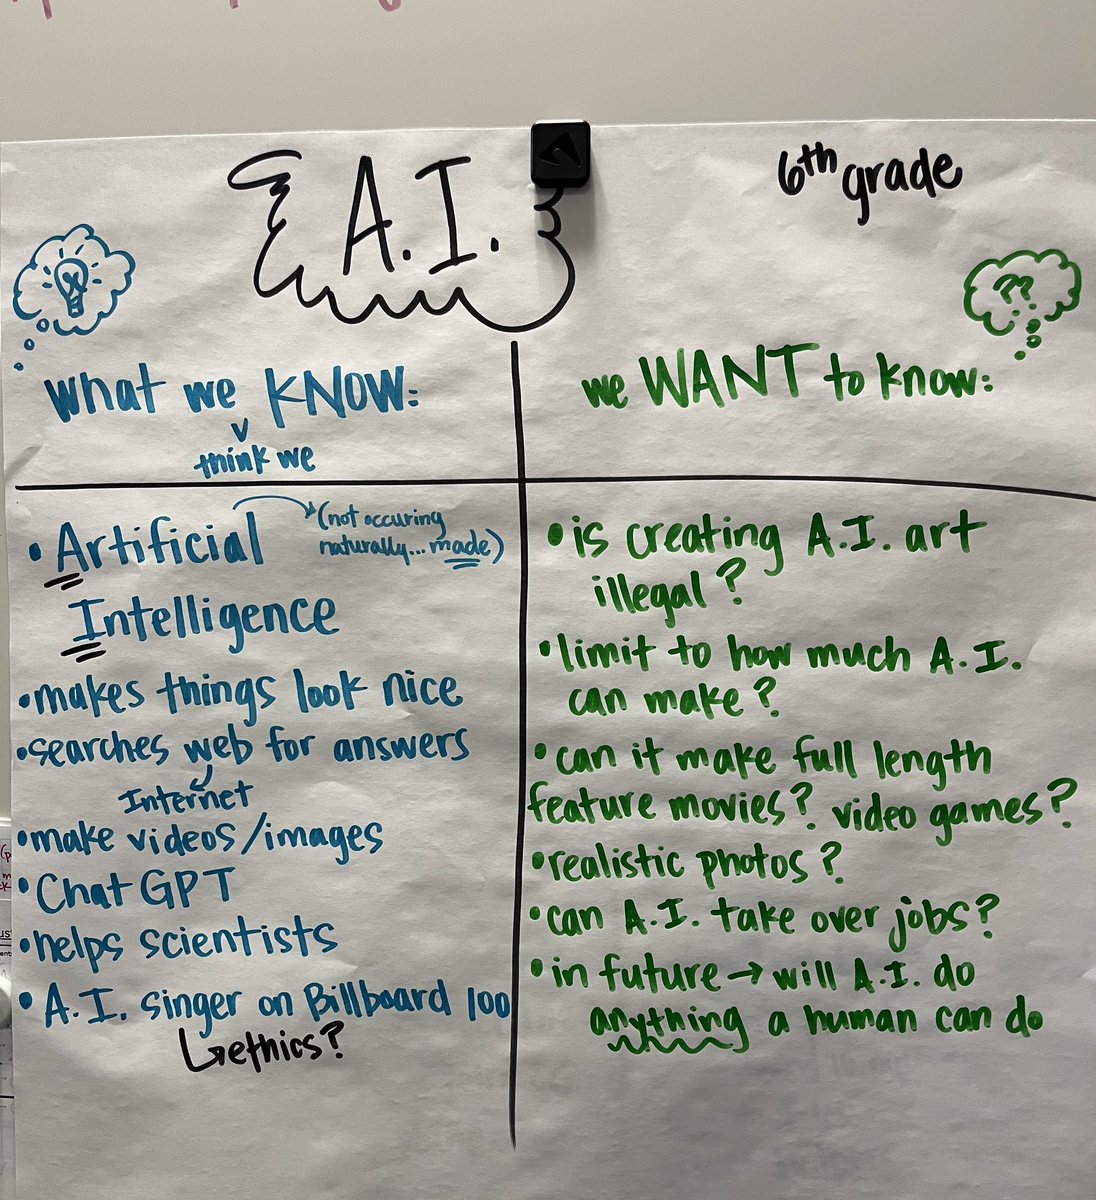 A.I.
6th grade
??
what we KNOW:
think we
• Artificial
(not occuring
naturally... made)
Intelligence
• makes things look nice
• searches web for answers
Internet
• make videos/images
• Chat GPT
• helps scientists
• A.I. singer on Billboard 100
ethics?
we WANT to know:
• is creating A.I. art
illegal?
• limit to how much A.I.
can make?
• can it make full length
feature movies? video games?
• realistic photos?
• can A.I. take over jobs?
• in future → will A.I. do
anything a human can do